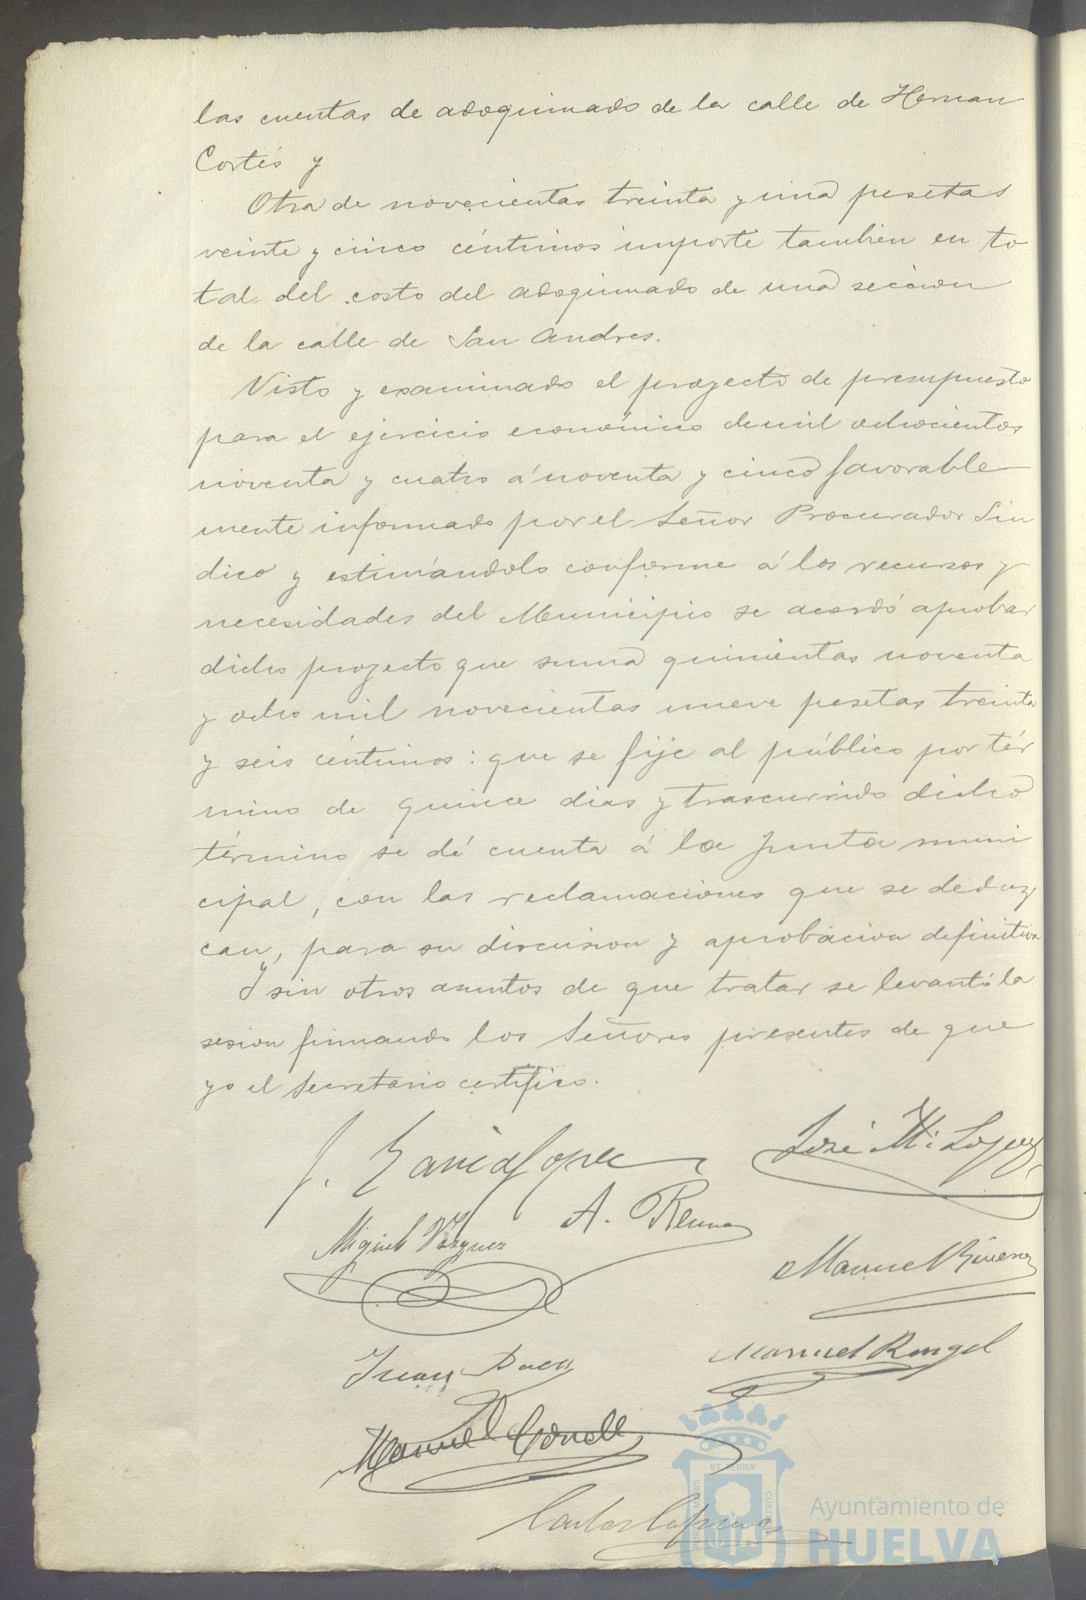 las cuentas de adoquinado de la calle de Hernan
Cortés y
Otra de novecientas treinta y una pesetas
veinte y cinco céntimos importe tambien en to
tal del costo del adoquinado de una seccion
de la calle de San Andres.
Visto y examinado el proyecto de presupuesto
para el ejercicio económico de mil ochocientos
noventa y cuatro á noventa y cinco favorable
mente informado por el Señor Procurador Sin
dico y estimándolo conforme á los recursos y
necesidades del Municipio se acordó aprobar
dicho proyecto que suma quinientas noventa
y ocho mil novecientas nueve pesetas treinta
y seis céntimos: que se fije al público por tér
mino de quince dias y trascurrido dicho
término se dé cuenta á la Junta muni
cipal, con las reclamaciones que se deduz
can, para su discusion y aprobacion definitiva
Y sin otros asuntos de que tratar se levantó la
sesion firmando los Señores presentes de que
yo el Secretario certifico.
J. García Lopez
José Mª Lopez
Miguel Vazquez
A.
Manuel
Juan
Manuel Rangel
Manuel
Carlos
ET TERRÆ
Ayuntamiento de
HUELVA